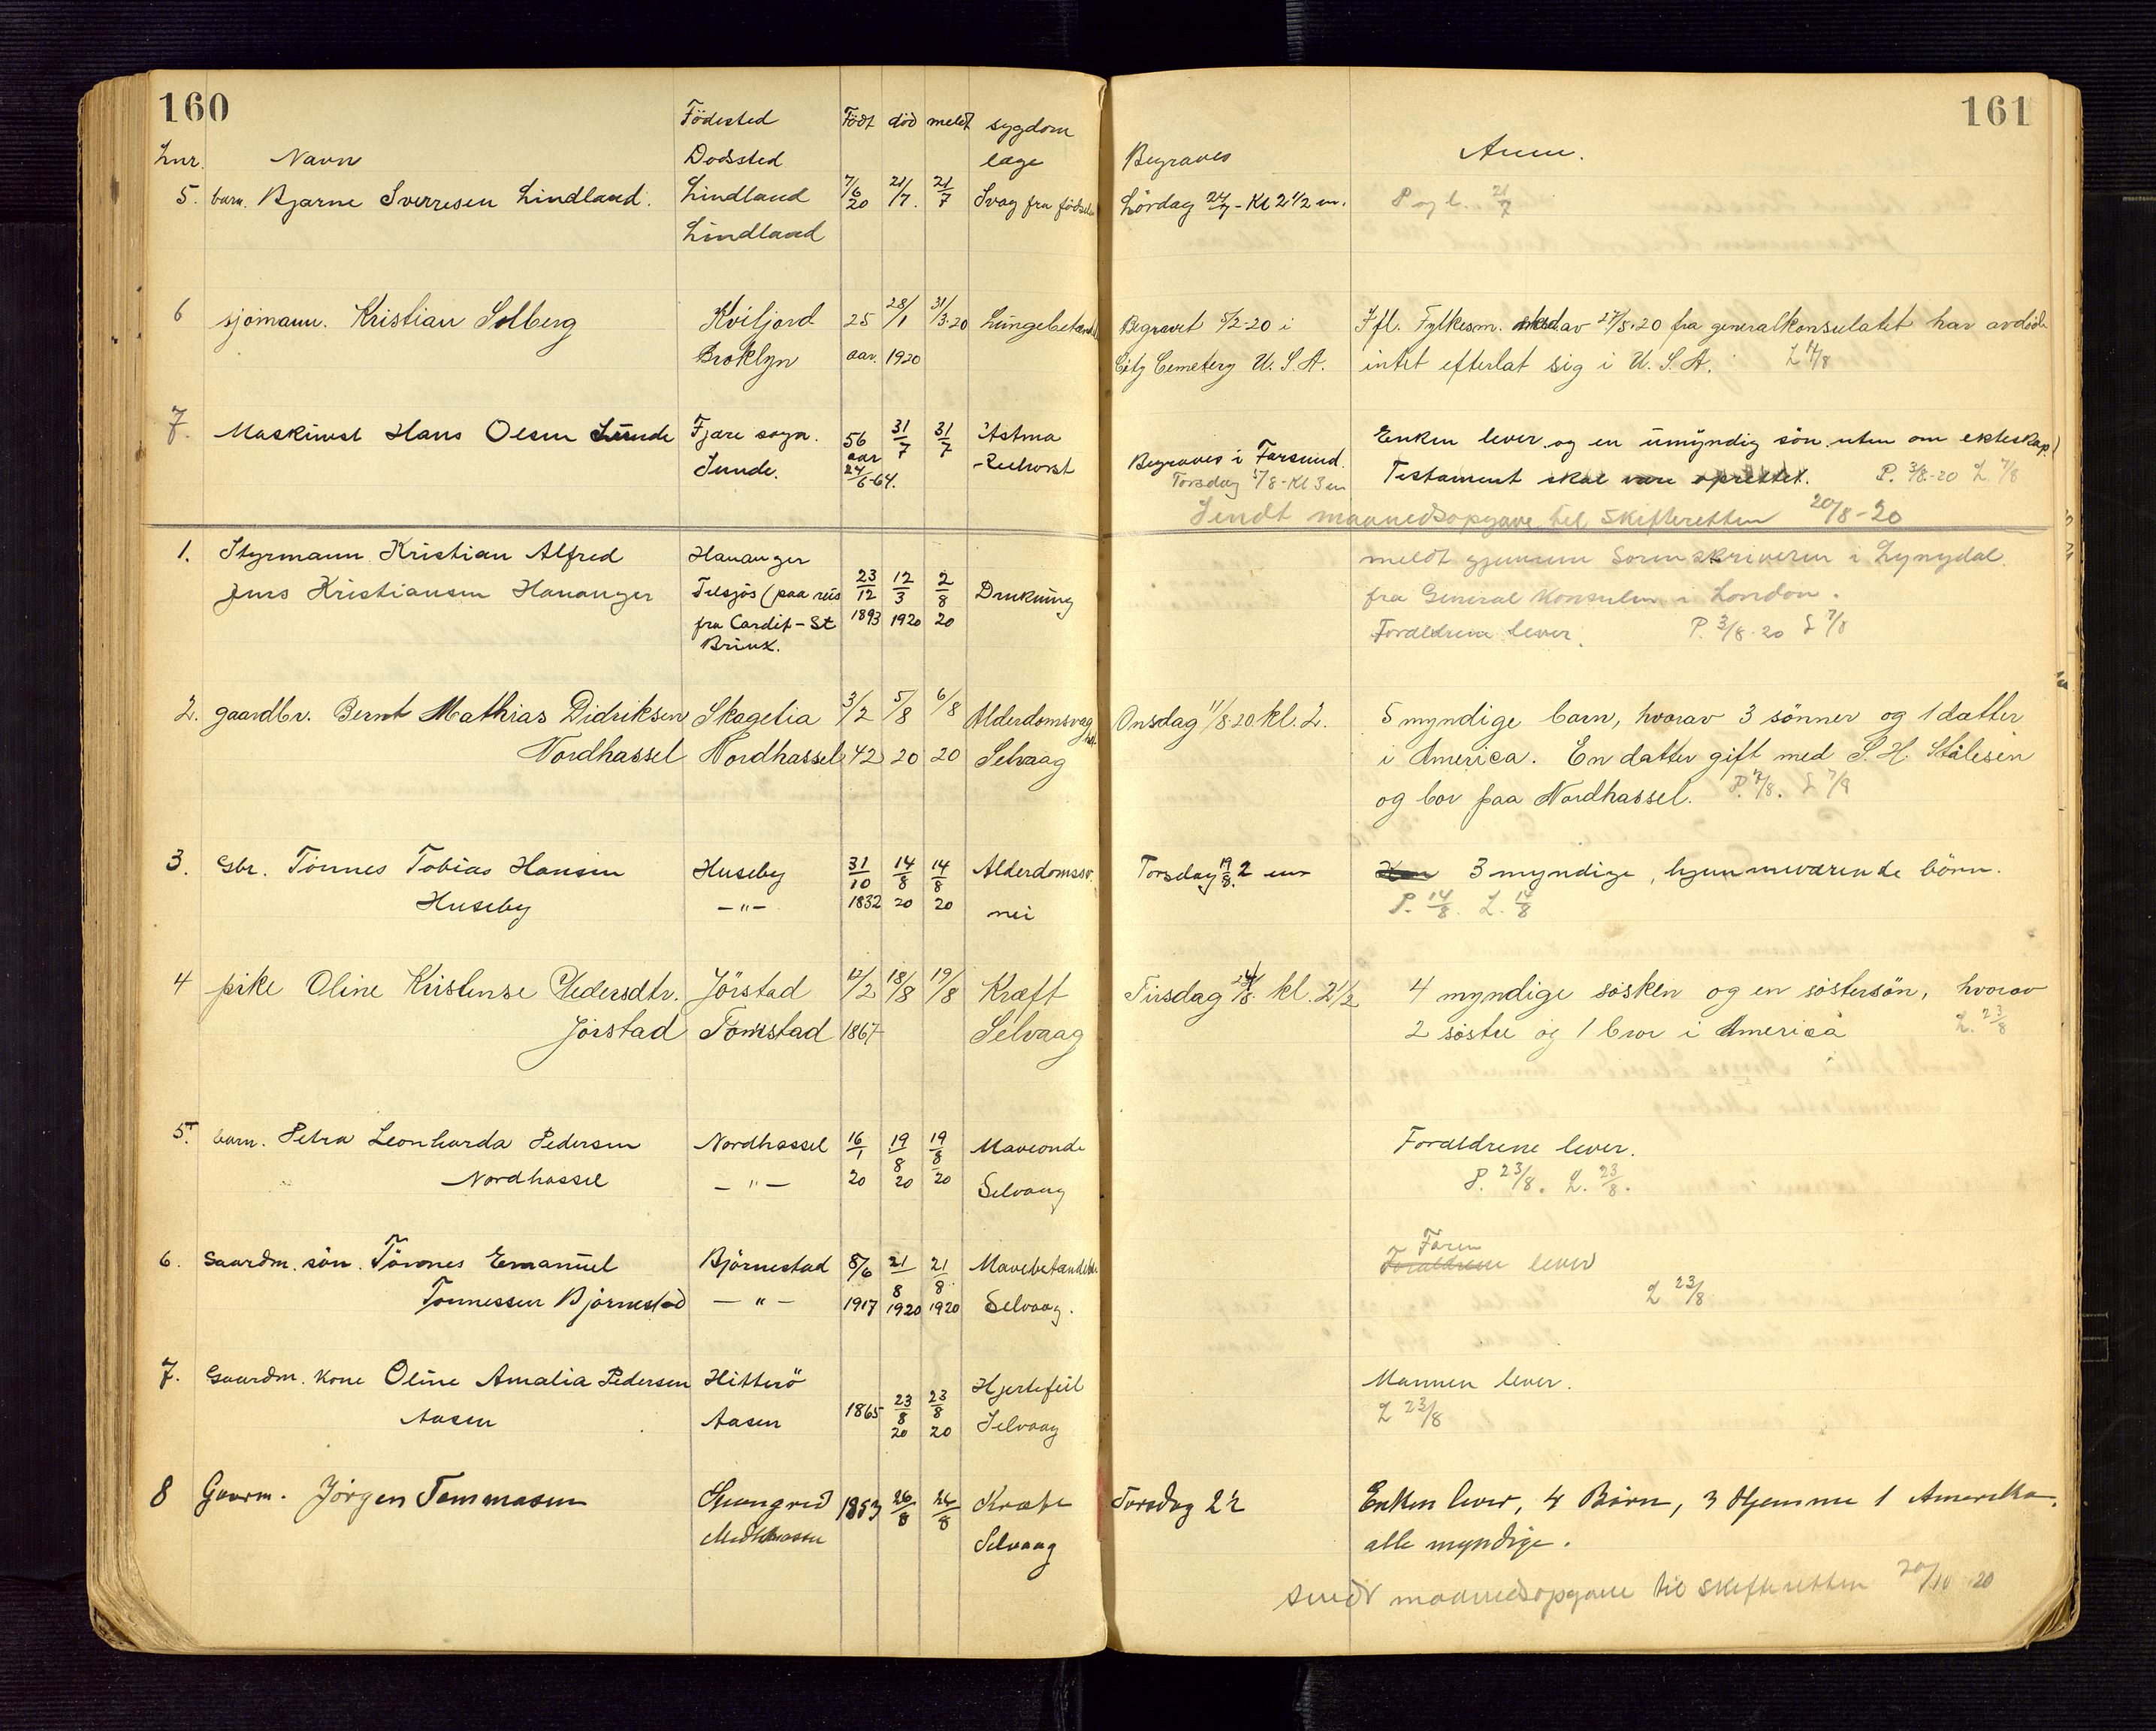 160
161
Födested Födt död meldt sygdom
Lnr. Navn Dødssted læge Begraves Anm.
5. barn. Bjarne Sverresen Lindland. Lindland 7/6 20 21/7. 21/7 Svag fra födsel Lördag 24/7 - Kl 2 1/2 em. P og L. 21/7
Lindland
6 sjömann. Kristian Solberg Kviljord 25 28/1 31/3-20 Lungebetænd Begravet 5/2-20 i Ifl. Fylkesm. skr. av 27/5-20 fra generalkonsulatet har avdöde
Broklyn aar. 1920 City Cemetery U. S. A. intet efterlat sig i U. S. A. L 14/8
7. Maskinist Hans Olsen Lunde Fjære sogn. 56 aar 31/7 31/7 Astma Begraves i Farsund. Enken lever og en umyndig sön uten om ekteskap)
Sunde. 24/6-64. Torsdag 5/8 - Kl 3 em Testament skal være oprettet. P. 3/8-20 L 7/8
Sendt maanedsopgave til Skifteretten 20/8-20
1. Styrmann Kristian Alfred Hananger meldt gjennem Sorenskriveren i Lyngdal
Jens Kristiansen Hananger Tilsjös (paa reis 23/12 12/3 2/8 Drukning fra General Konsulen i London.
fra Cardif - St 1893 1920 20 Forældrene lever. P. 3/8-20 L 7/8
Brieux.
2. gaardbr. Bernt Mathias Didriksen Skagetia 3/2 5/8 6/8 Alderdomsvaghet Onsdag 11/8 20. kl. 2. 5 myndige barn, hvorav 3 sönner og 1 datter
Nordhassel Nordhassel 42 20 20 Selvaag i America. En datter gift med S. H. Stålesen
og bor paa Nordhassel. P. 7/8. L 7/8
3. Gbr. Tönnes Tobias Hansen Huseby 31/10 14/8 14/8 Alderdomssv. Torsdag 19/8. 2 em 3 myndige, hjemmeværende börn.
Huseby —"— 1832 20 20 nei P. 14/8. L. 14/8
4 pike Oline Kristense Pedersdtr. Jörstad 12/2 18/8 19/8 Kræft Tirsdag 24/8. kl. 2 1/2 4 myndige sösken og en söstersön, hvorav
Jörstad Tomstad 1867 Selvaag 2 söstre og 1 bror i America L. 23/8
5. barn. Petra Leonharda Pedersen Nordhassel 16/1 19/8 19/8 Maveonde Forældrene lever.
Nordhassel —"— 20 20 20 Selvaag P. 23/8. L. 23/8.
6. Gaardm. sön. Tönnes Emanuel Björnestad 8/6 21/8 21/8 Mavebetændelse Faren Forældrene lever
Tönnessen Björnestad —"— 1917 1920 1920 Selvaag. L 23/8
7. Gaardm. kone Oline Amalia Pedersen Hitterö 1865 23/8 23/8 Hjertefeil Mannen lever.
Aasen Aasen 20 20 Selvaag L 23/8
8 Gaarm. Jörgen Tommasen 1853 26/8 26/8 Kræft Torsdag 2 1/2 Enken lever, 4 Börn, 3 Hjemme 1 Amerika,
Selvaag alle myndige.
sendt maanedsopgave til Skifteretten 20/10 20